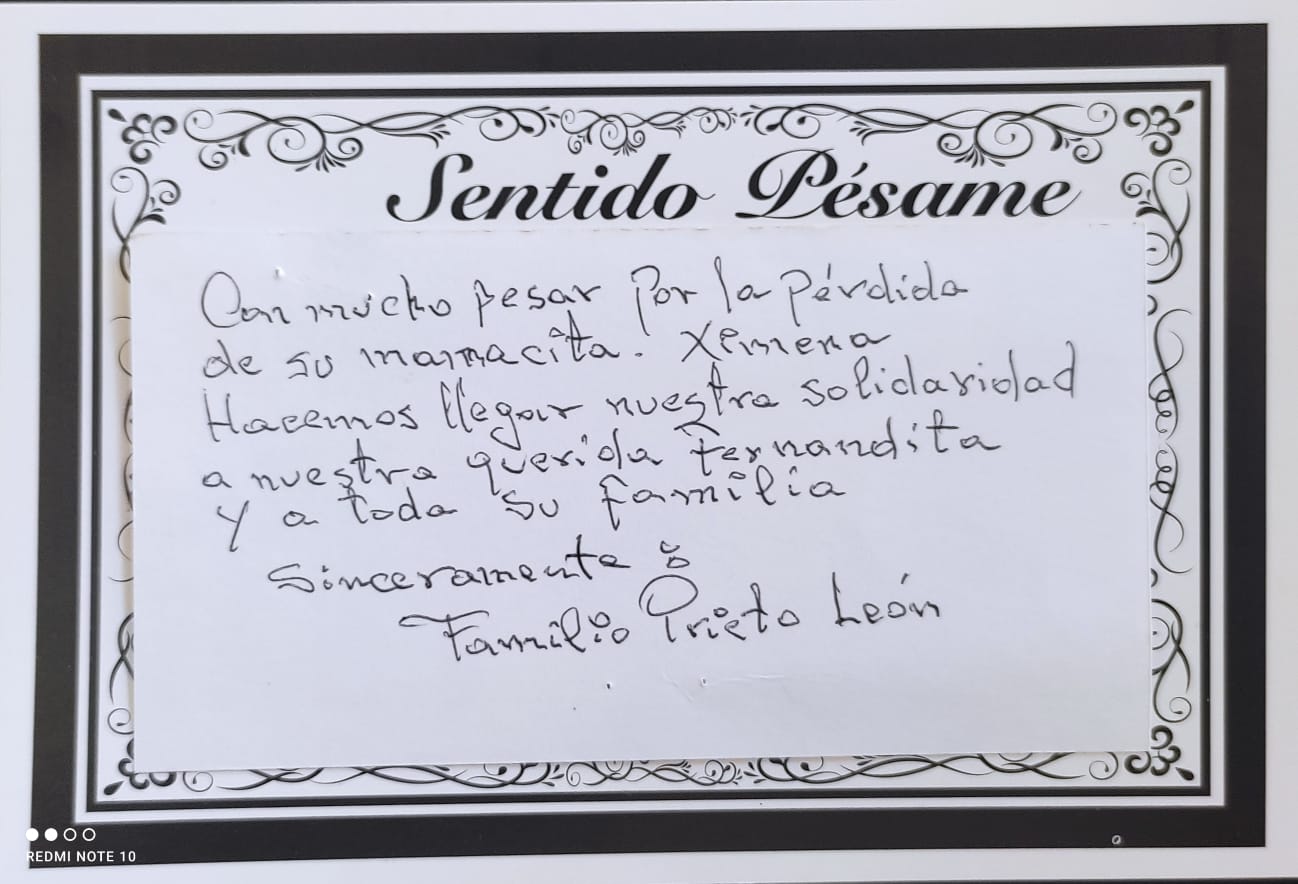 Sentido Pésame
Con mucho pesar por la pérdida
de su mamacita. Ximena
Hacemos llegar nuestra solidaridad
a nuestra querida Fernandita
y a toda su familia
Sinceramente :
Familia Prieto León
REDMI NOTE 10